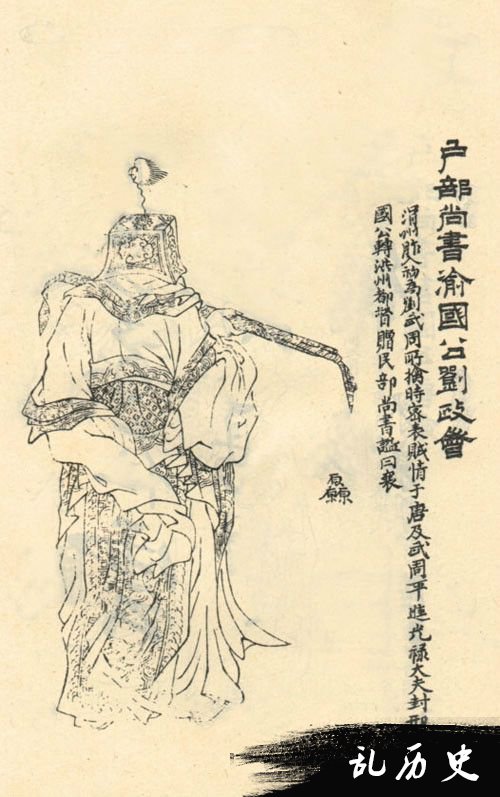 户部尚書渝國公劉政會
滑州胙人初為劉武周所擒時密表賊情于唐及武周平進光祿大夫封
國公轉洪州都督贈民部尚書諡曰襄
乱历史